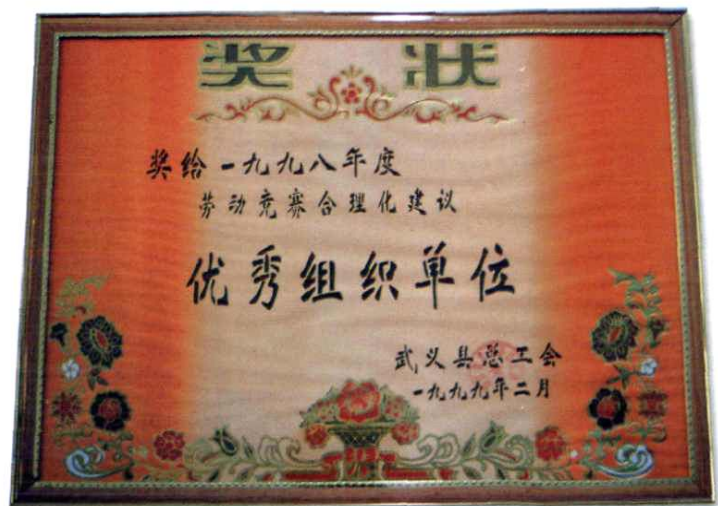 奖状
奖给一九九八年度
劳动竞赛合理化建议
优秀组织单位
武义县总工会
一九九九年二月